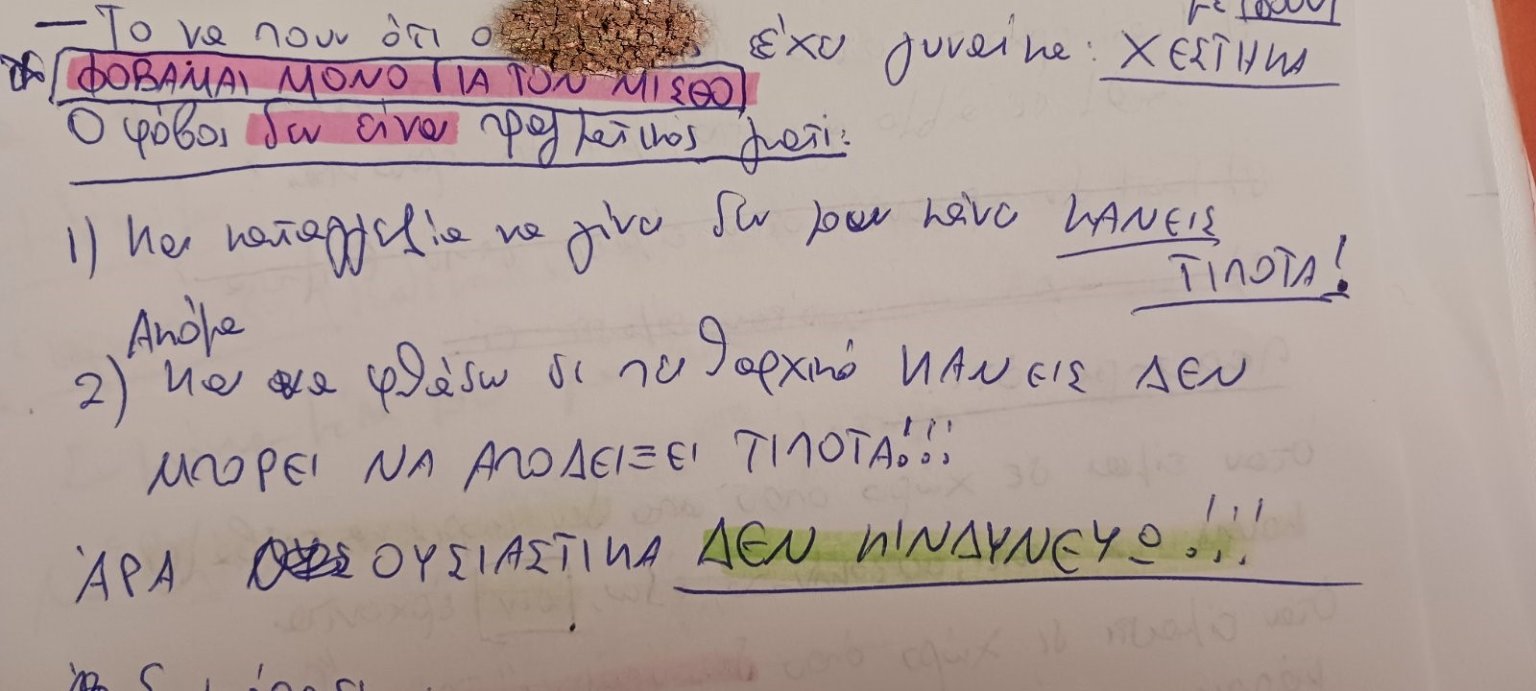 — Το να πουν ότι ο έχω γυναίκα: ΧΕΣΤΗΚΑ
ΦΟΒΑΜΑΙ ΜΟΝΟ ΓΙΑ ΤΟΝ ΜΙΣΘΟ
Ο φόβος δεν είναι πραγματικός γιατί:
1) Και καταγγελία να γίνει δεν μου κάνει ΚΑΝΕΙΣ
ΤΙΠΟΤΑ!
Ακόμα
2) και να φθάσω σε πειθαρχικό ΚΑΝΕΙΣ ΔΕΝ
ΜΠΟΡΕΙ ΝΑ ΑΠΟΔΕΙΞΕΙ ΤΙΠΟΤΑ!!!
ΆΡΑ ΟΥΣΙΑΣΤΙΚΑ ΔΕΝ ΚΙΝΔΥΝΕΥΩ!!!